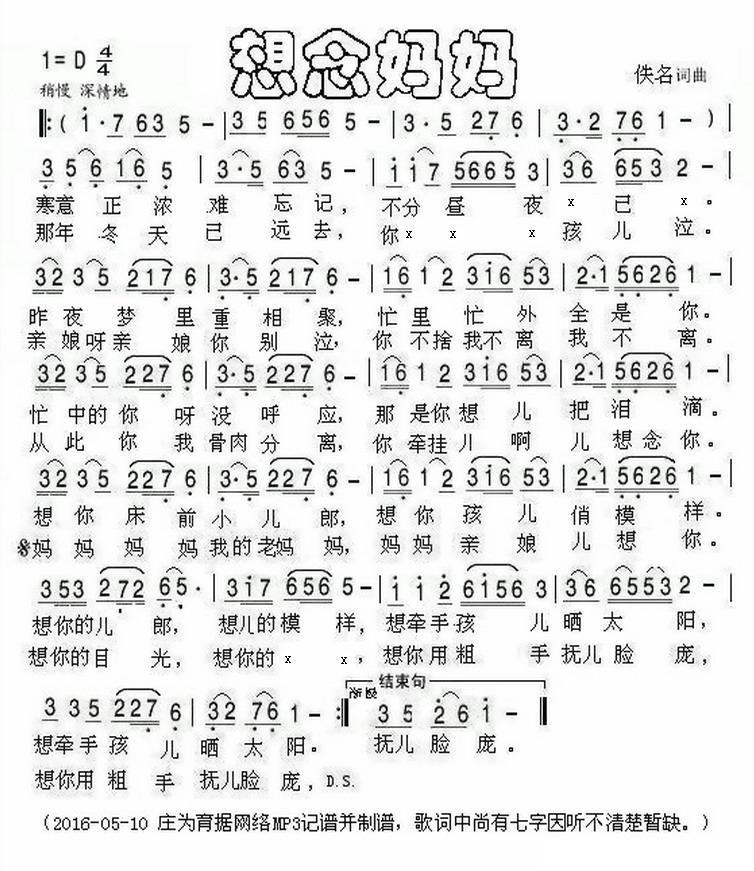 想念妈妈
1=D 4/4
稍慢 深情地
佚名词曲
‖:( i·7 63 5 - | 35 656 5 - | 3·5 27 6 - | 3·2 76 1 - ) |
356 16 5 | 3·5 63 5 - | i i i7 5665 3 | 36 653 2 - |
寒意正浓难忘记，不分昼夜x已x。
那年冬天已远去，你x x x孩儿泣。
32 35 217 6 | 3·5 217 6 - | 16 12 3i6 53 | 2·1 5626 1 - |
昨夜梦里重相聚，忙里忙外全是你。
亲娘呀亲娘你别泣，你不捨我不离我不离。
32 35 227 6 | 3·5 227 6 - | 16 12 3i6 53 | 2·1 5626 1 - |
忙中的你呀没呼应，那是你想儿把泪滴。
从此你我骨肉分离，你牵挂儿啊儿想念你。
32 35 227 6 | 3·5 227 6 - | 16 12 3i6 53 | 2·1 5626 1 - |
想你床前小儿郎，想你孩儿俏模样。
𝄋妈妈妈妈我的老妈妈，妈妈亲娘儿想你。
353 272 65· | 3i7 656 5 - | i i 2 6i56 3 | 36 6553 2 - |
想你的儿郎，想儿的模样，想牵手孩儿晒太阳，
想你的目光，想你的x x，想你用粗手抚儿脸庞，
结束句
渐慢
3 35 227 6 | 32 76 1 - :‖ 35 26 i - ‖
想牵手孩儿晒太阳。抚儿脸庞。
想你用粗手抚儿脸庞，D.S.
（2016-05-10 庄为育据网络MP3记谱并制谱，歌词中尚有七字因听不清楚暂缺。）